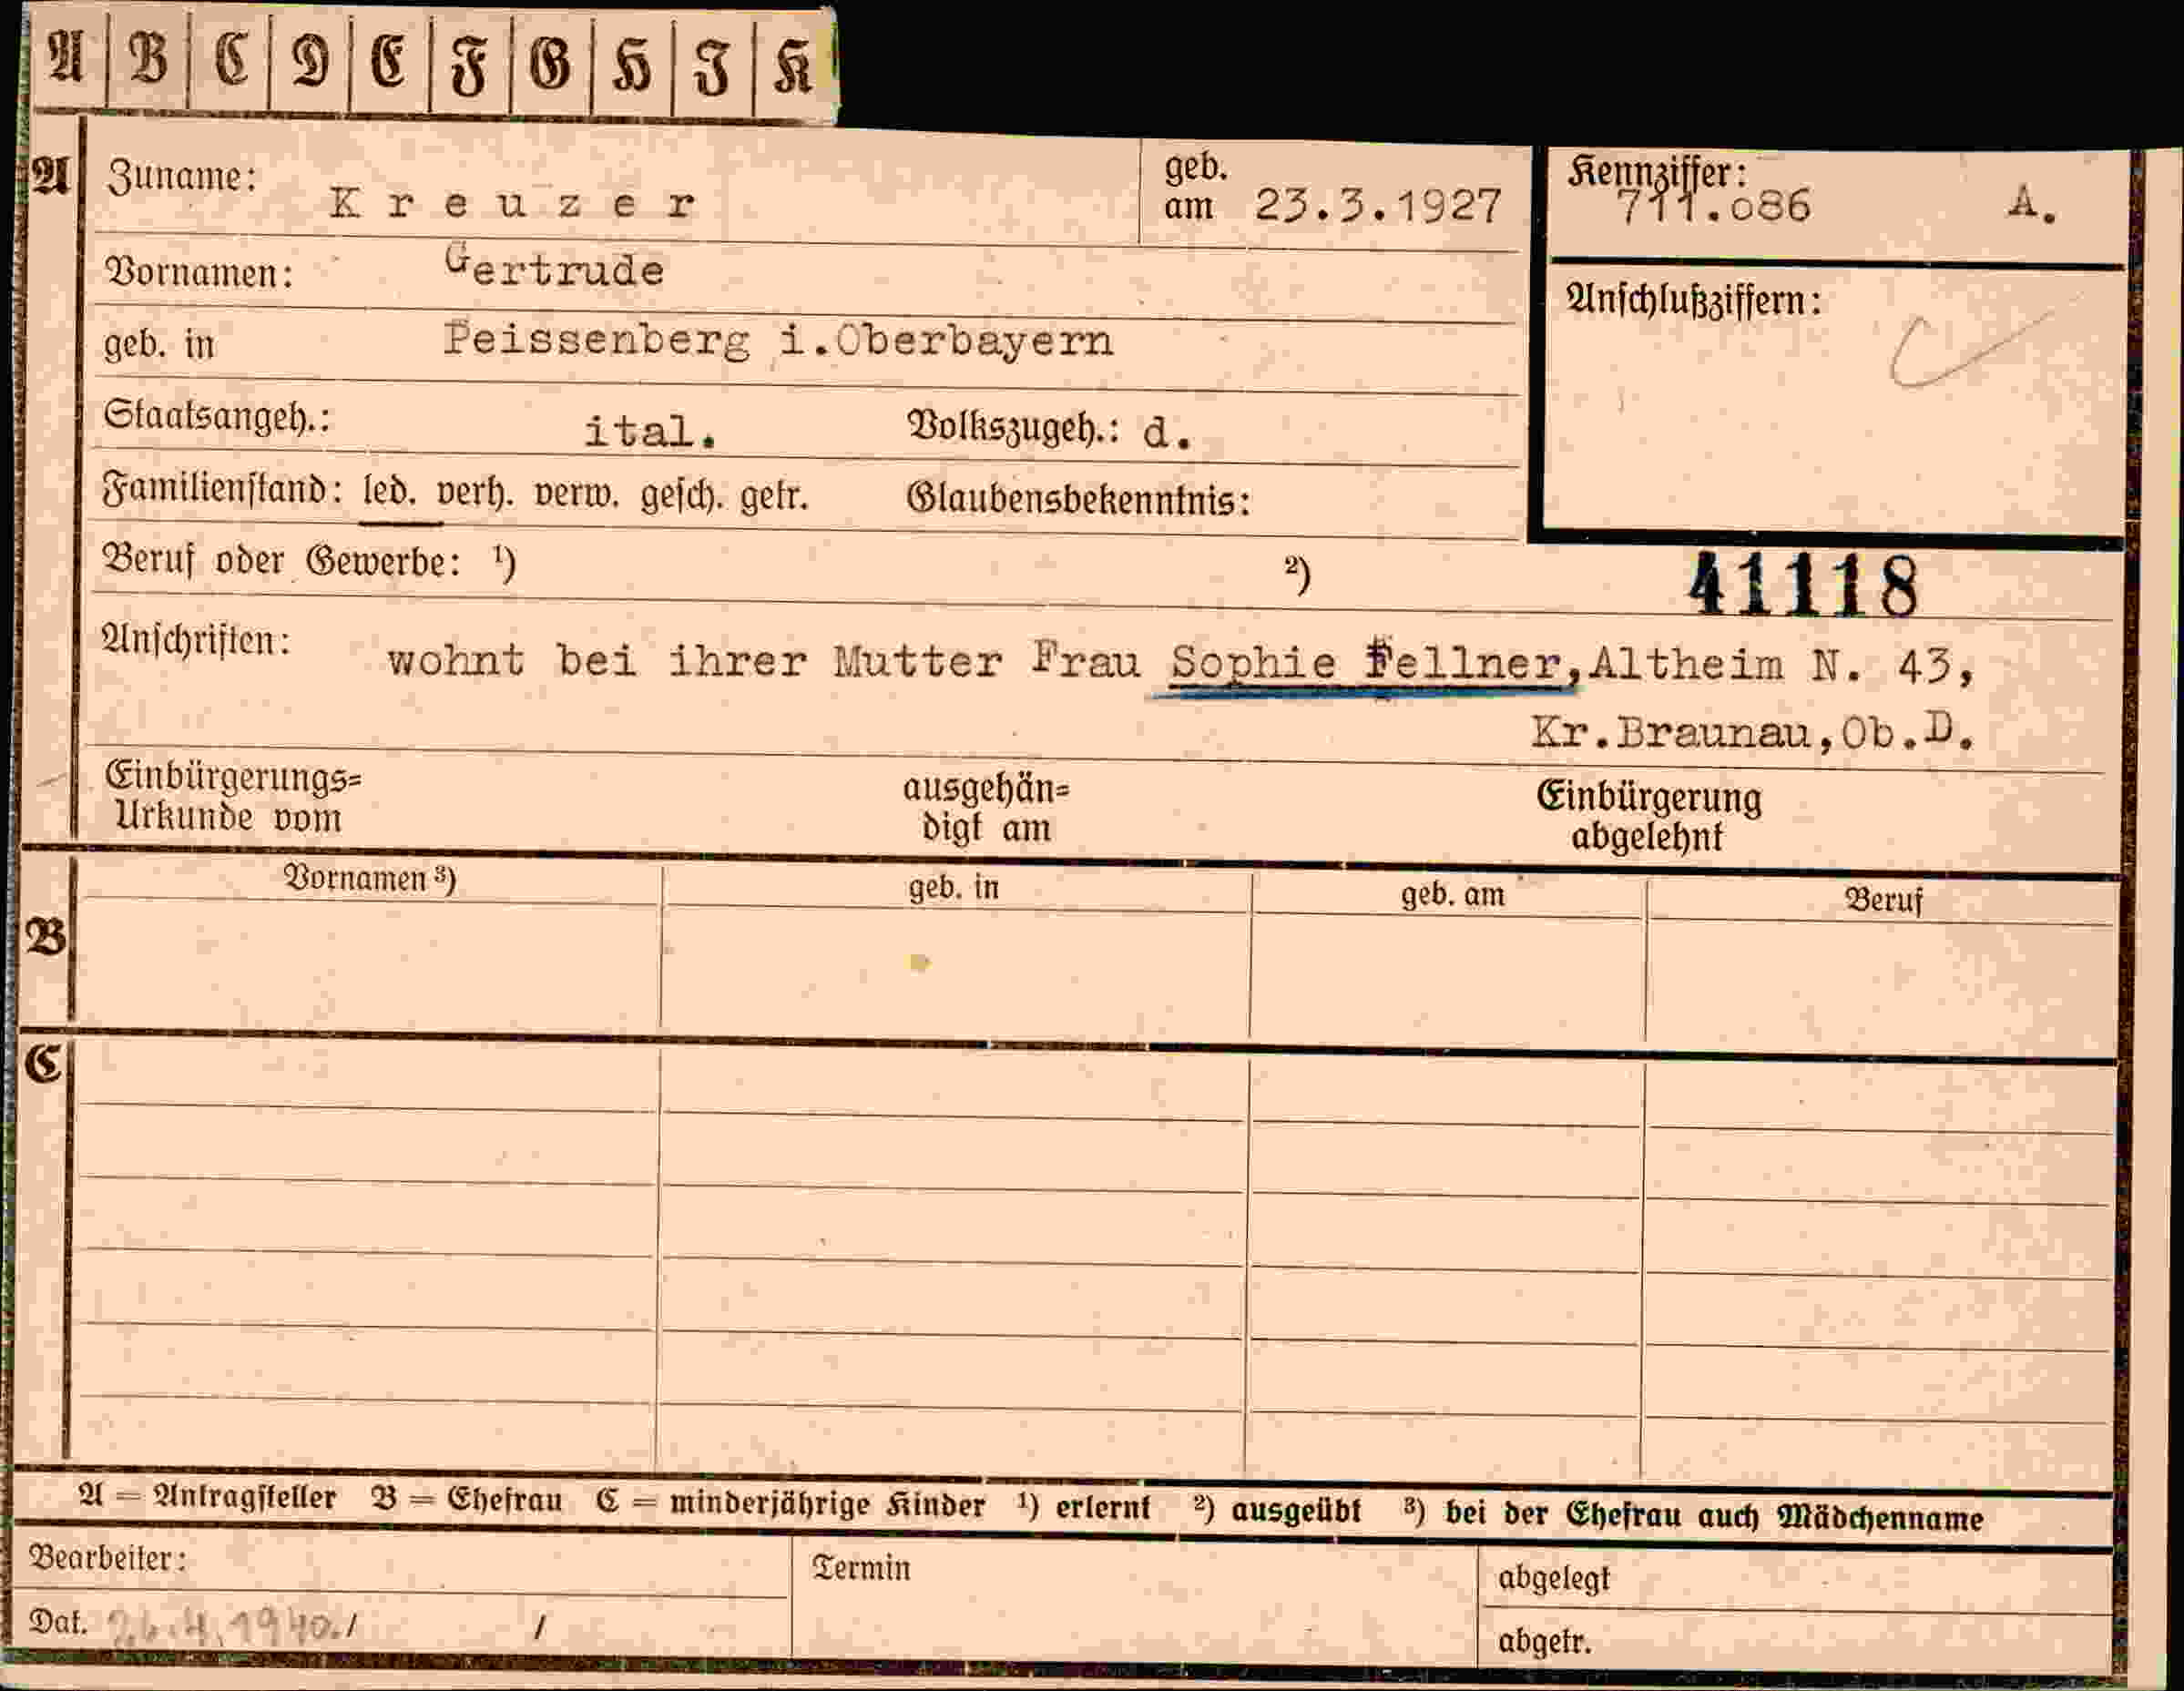 A B C D E F G H I K
A Zuname: Kreuzer geb. am 23.3.1927 Kennziffer: 711.o86 A.
Vornamen: Gertrude
Anschlußziffern:
geb. in Peissenberg i.Oberbayern
Staatsangeh.: ital. Volkszugeh.: d.
Familienstand: led. verh. verw. gesch. getr. Glaubensbekenntnis:
Beruf oder Gewerbe: ¹) ²) 41118
Anschriften: wohnt bei ihrer Mutter Frau Sophie Fellner,Altheim N. 43,
Kr.Braunau,Ob.D.
Einbürgerungs= ausgehän= Einbürgerung
Urkunde vom digt am abgelehnt
Vornamen ³) geb. in geb. am Beruf
B
C
A = Antragsteller B = Ehefrau C = minderjährige Kinder ¹) erlernt ²) ausgeübt ³) bei der Ehefrau auch Mädchenname
Bearbeiter: Termin abgelegt
Dat. 26.4.1940./ /
abgetr.